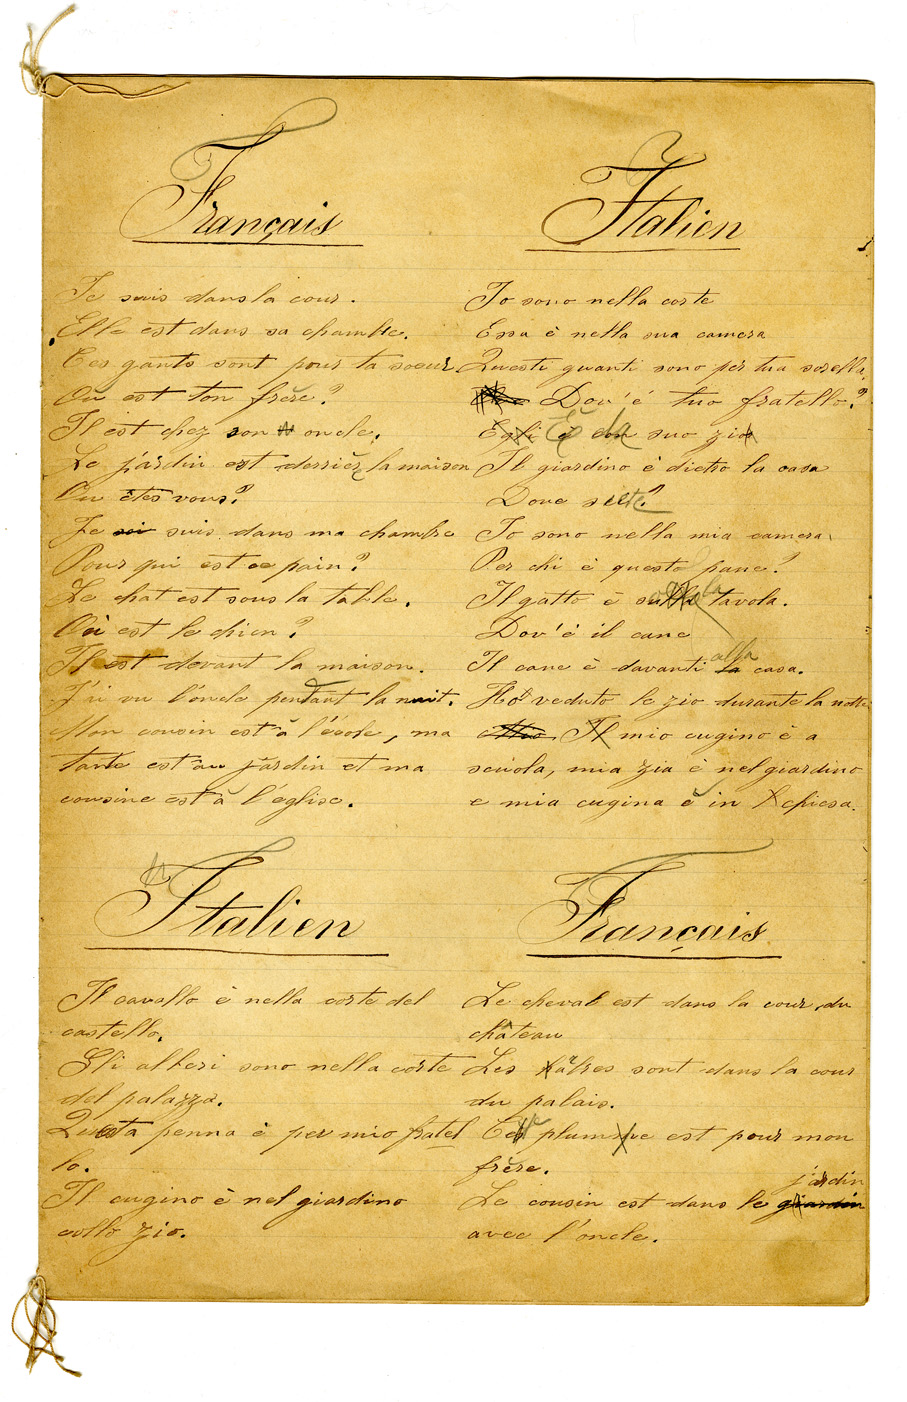 Français
Je suis dans la cour.
Elle est dans sa chambre.
Ces gants sont pour ta soeur.
Où est ton frère?
Il est chez son oncle.
Le jardin est derrière la maison
Ou êtes vous?
Je suis dans ma chambre
Pour qui est ce pain?
Le chat est sous la table.
Où est le chien?
Il est devant la maison.
J'ai vu l'oncle pendant la nuit.
Mon cousin est à l'école, ma
tante est au jardin et ma
cousine est à l'eglise.
Italien
Io sono nella corte
Essa è nella sua camera
Questi guanti sono per tua sorella.
Dov'é tuo fratello?
È da suo zio
Il giardino è dietro la casa
Dove siete?
Io sono nella mia camera
Per chi è questo pane?
Il gatto è la tavola.
Dov'é il cane
Il cane è davanti alla casa.
Ho veduto lo zio durante la notte
mio cugino è a
scuola, mia zia è nel giardino
e mia cugina è in chiesa.
Italien
Il cavallo è nella corte del
castello.
Gli alberi sono nella corte
del palazzo.
Questa penna è per mio fratel
lo.
Il cugino è nel giardino
collo zio.
Français
Le cheval est dans la cour du
château
Les arbres sont dans la cour
du palais.
Cette plume est pour mon
frère.
Le cousin est dans le jardin
avec l'oncle.